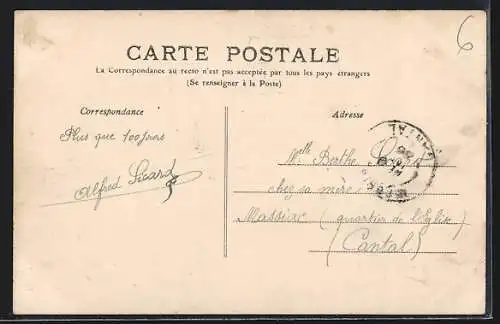 6
CARTE POSTALE
La Correspondance au recto n'est pas acceptée par tous les pays étrangers
(Se renseigner à la Poste)
Correspondance
Adresse
Plus que 100 jours
Alfred Sicard
Melle Berthe
chez sa mère
Massiac (quartier de l'Eglise)
(Cantal)